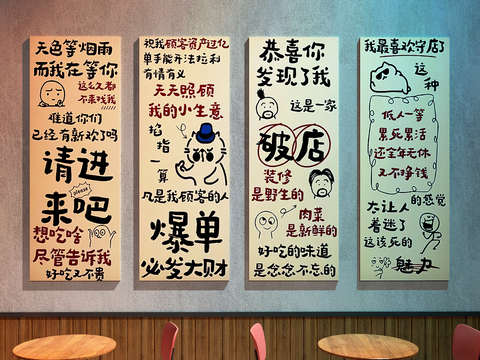 天色等烟雨
而我在等你
这么久都
不来找我
难道你们
已经有新欢了吗
请进
please
来吧
想吃啥
尽管告诉我
好吃又不贵
祝我顾客资产过亿
单手能开法拉利
有情有义
天天照顾
我的小生意
掐
指
一
算
凡是我顾客的人
爆单
必发大财
恭喜你
发现了我
这是一家
破店
装修
是野生的
肉菜
是新鲜的
好吃的味道
是念念不忘的
我最喜欢守店了
这
种
低人一等
累死累活
还全年无休
又不挣钱
的感觉
太让人
着迷了
这该死的
魅力